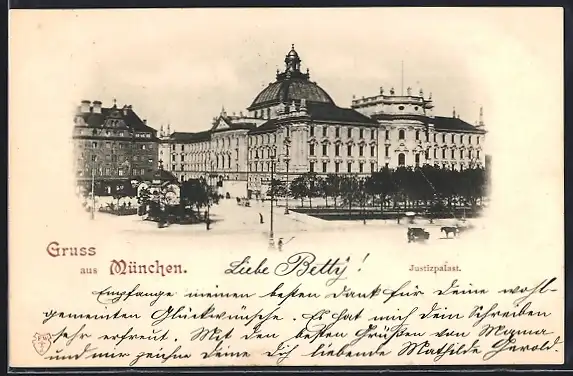 Gruss
aus München.
Justizpalast.
Liebe Betty!
Empfange meinen besten Dank für Deine wohl-
gemeinten Glückwünsche. Es hat mich dein Schreiben
sehr erfreut. Mit den besten Grüßen von Mama
und mir zeichne Deine Dich liebende Mathilde Gerold.